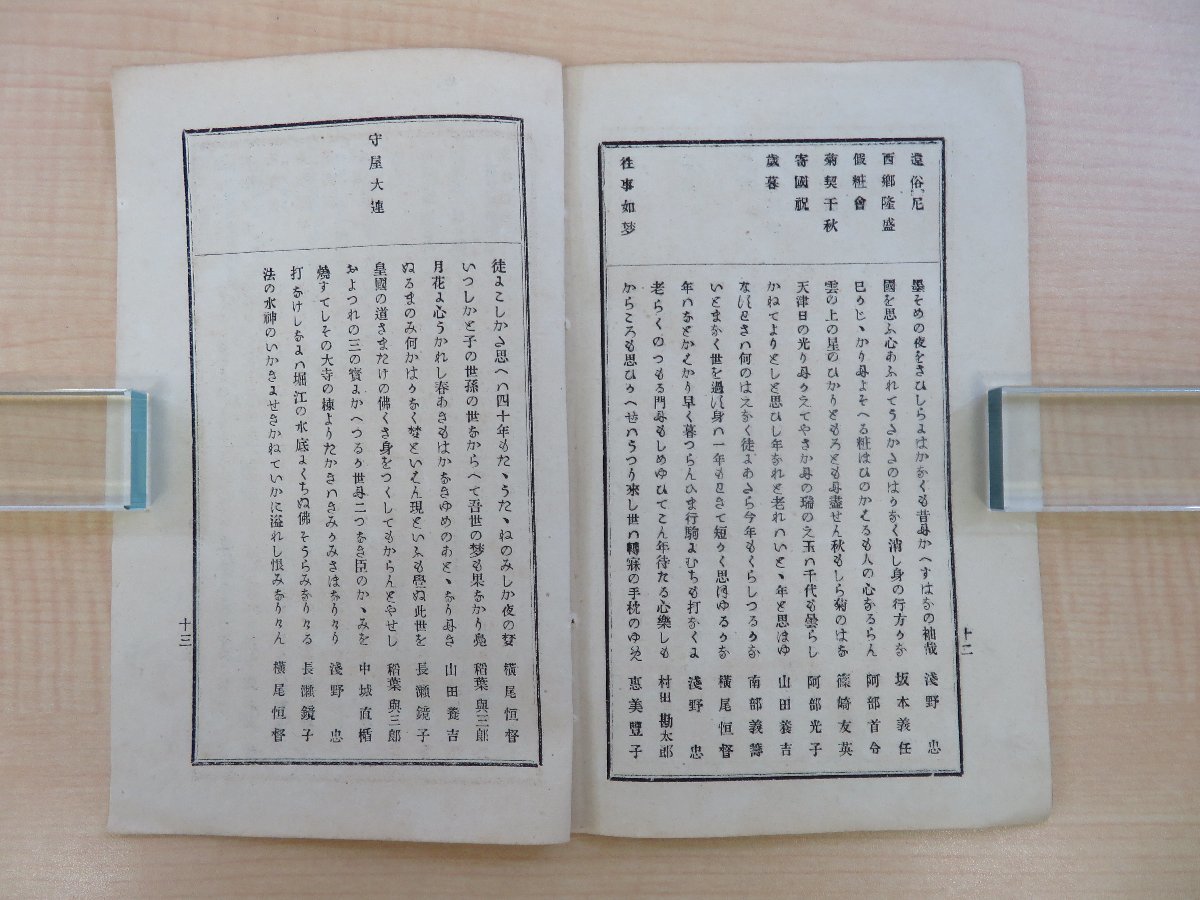 還俗尼
墨そめの夜をさひしらにはかなくも昔にかへすはなの袖哉 淺野 忠
西郷隆盛
國を思ふ心あふれてうさかさのはりなく消し身の行方かな 坂本義任
假粧會
よそへる粧はひのかはるも人の心なるらん 阿部首令
菊契千秋
雲の上の星のひかりともろともに盡せん秋もしら菊のはな 篠崎友英
寄國祝
天津日の光りにかえてやさかにの瑞のえ玉ハ千代も曇らし 阿部光子
歳暮
かねてよりとしと思ひし年なれと老れハいとヽ年と思はゆ 山田養吉
何のはえなく徒にあたら今年もくらしつるかな 南部義籌
いとまなく世を過す身ハ一年もときて短かく思ほゆるかな 横尾恒督
年ハなとかくかり早く暮つらんひま行駒にむちも打なくに 淺野 忠
老らくのつもる門にもしめゆひてこん年待たる心樂しも 村田勘太郎
往事如夢
からころも思ひかへせハうつり來し世ハ轉寐の手枕のゆめ 惠美豐子
十二
徒にこしかた思へハ四十年もたヽうたヽねのみしか夜の夢 横尾恒督
いつしかと子の世孫の世なからへて吾世の夢も果なかり鳧 稻葉與三郎
月花に心うかれし春あきもはかなきゆめのあとヽなりにき 山田養吉
ぬるまのみ何かはかなく夢といはん現といふも學ぬ此世を 長瀬鏡子
守屋大連
皇國の道さまたけの佛くさ身をつくしてもからんとやせし 稻葉與三郎
およつれの三の寶にかへつるか世に二つなき臣のかヽみを 中城直楯
燒すてしその大寺の棟よりたかきハきみかみさはなりけり 淺野 忠
打なけしなにハ堀江の水底にくちぬ佛そうらみなりける 長瀬鏡子
法の水神のいかきにせきかねていかに溢れし恨みなりけん 横尾恒督
十三